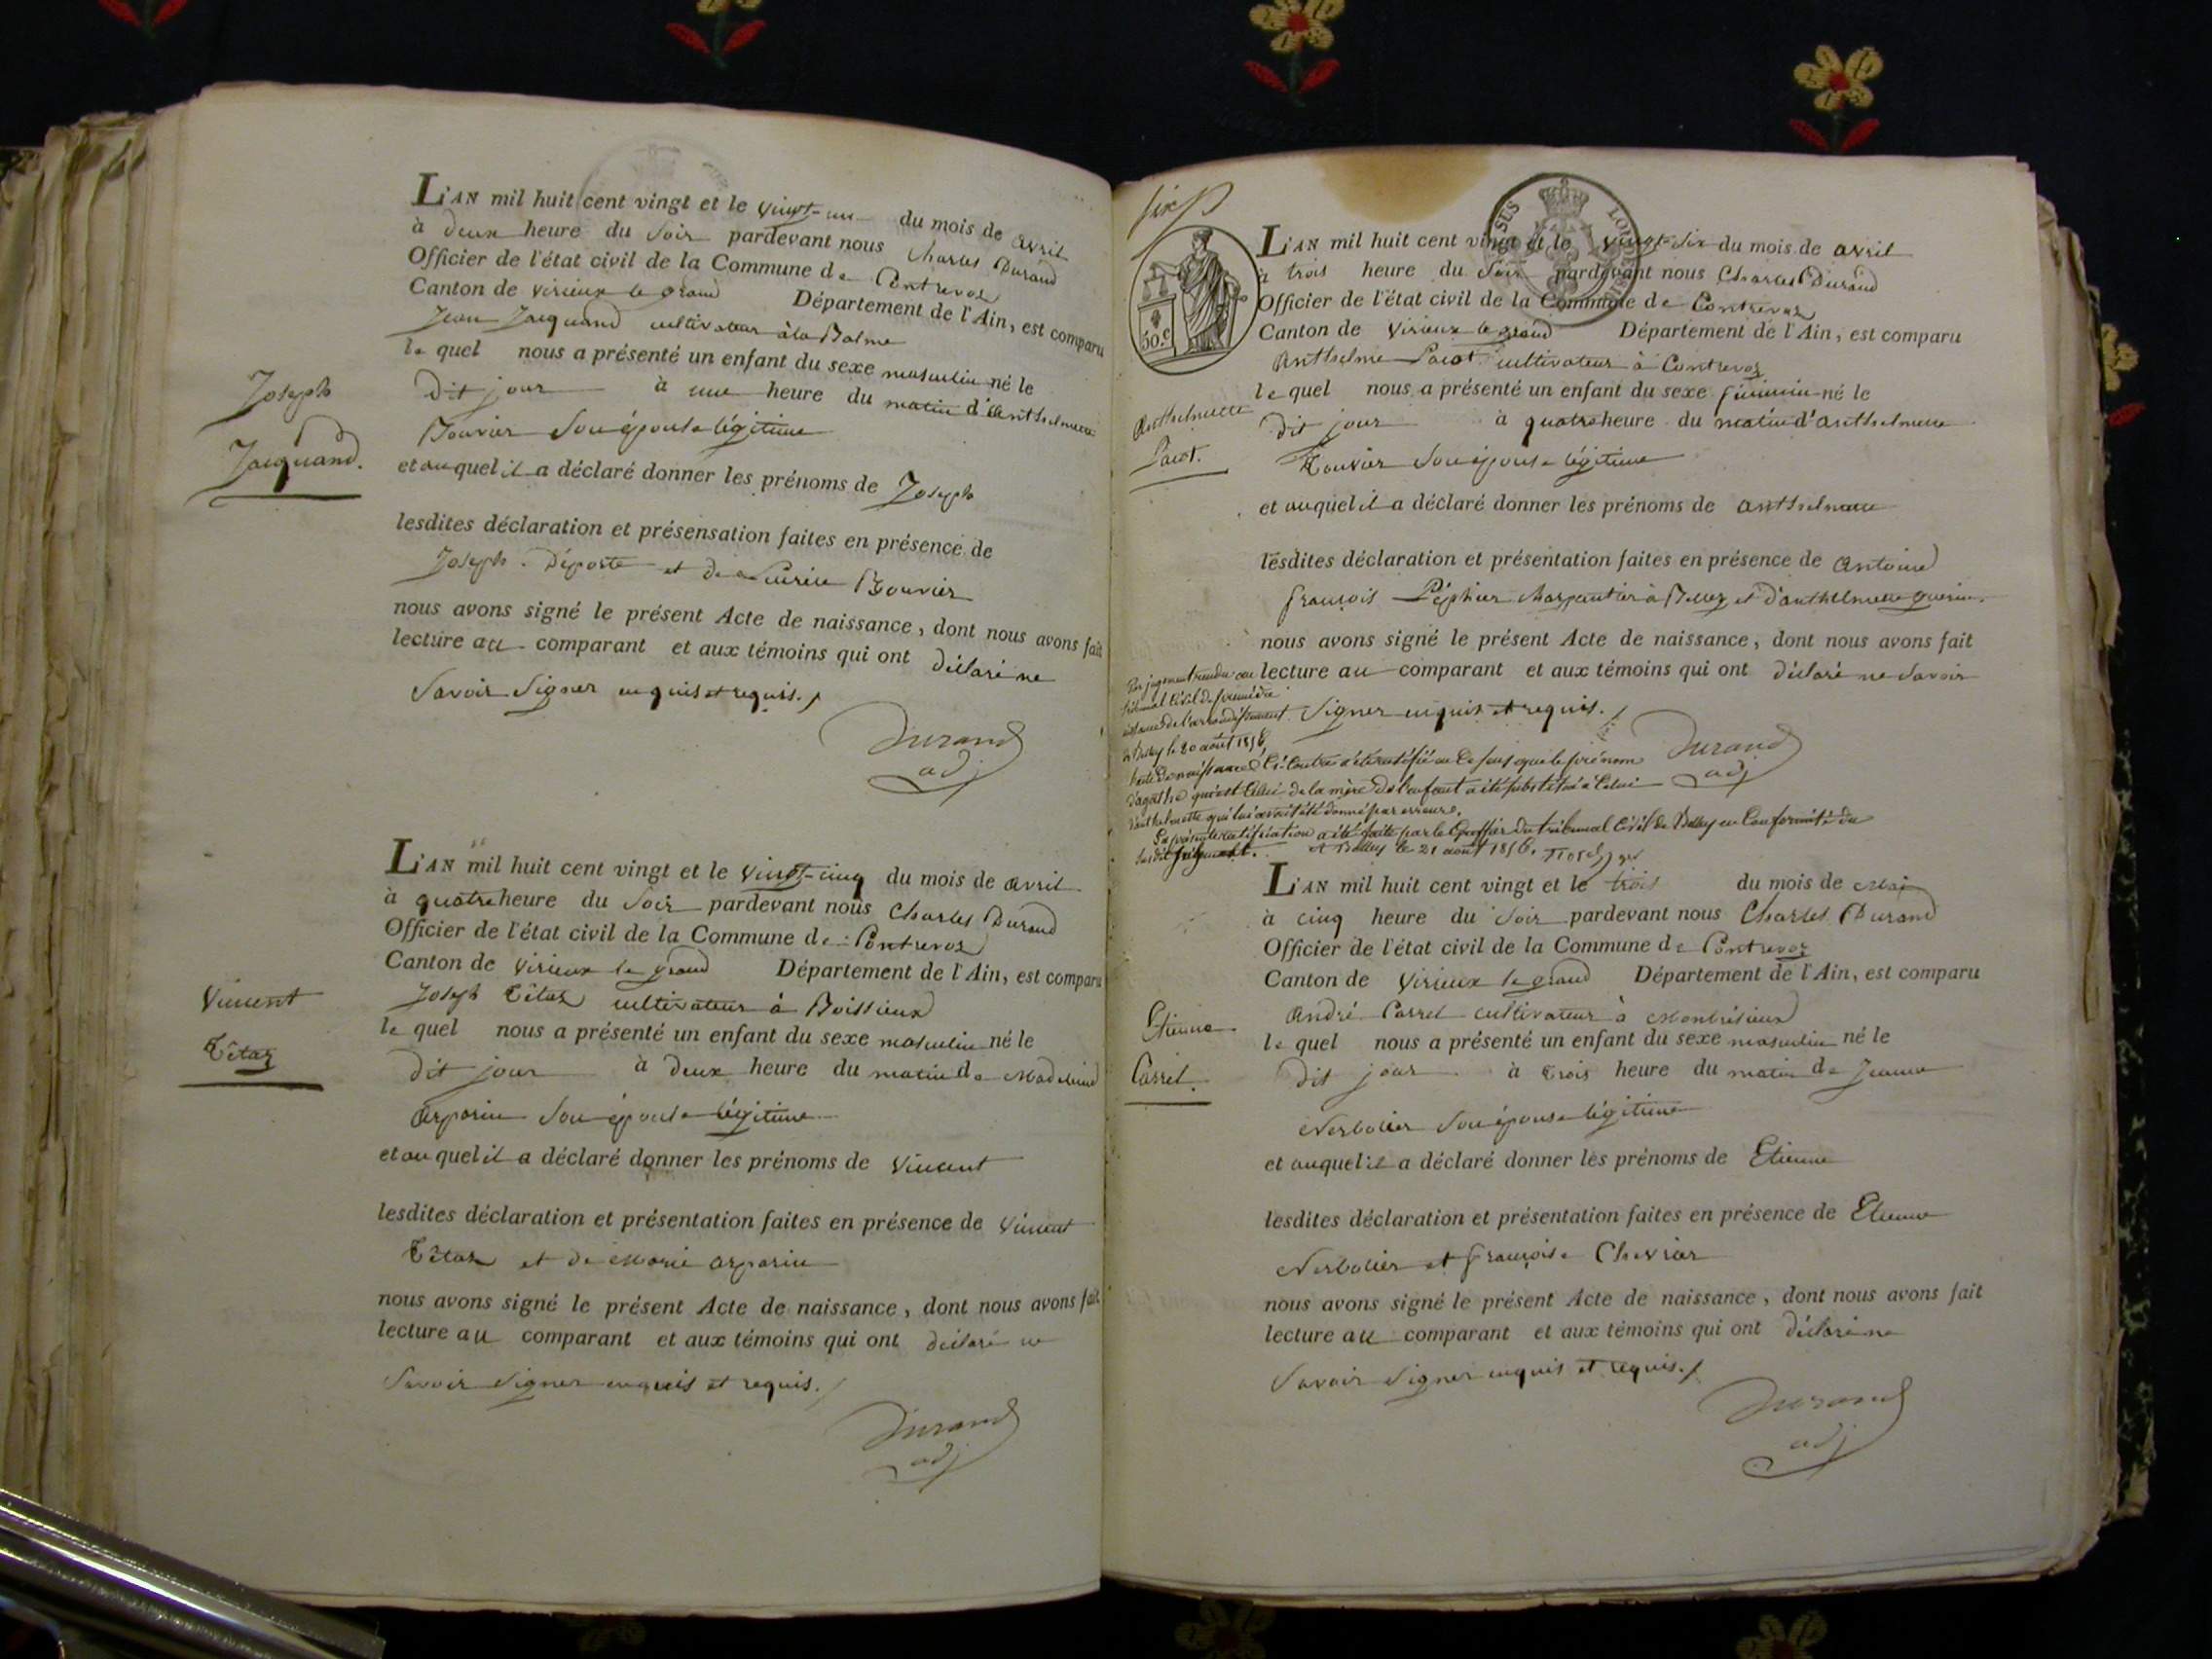 L'AN mil huit cent vingt et le vingt-un du mois de avril
à deux heure du soir pardevant nous Charles Durand
Officier de l'état civil de la Commune de Contrevoz
Canton de Virieux le grand Département de l'Ain, est comparu
Jean Jacquand cultivateur à la Balme
le quel nous a présenté un enfant du sexe masculin né le
dit jour à une heure du matin d'Anthelmette
Bouvier son épouse légitime
et auquel il a déclaré donner les prénoms de Joseph
lesdites déclaration et présensation faites en présence de
Joseph Déporte et de Bouvier
nous avons signé le présent Acte de naissance, dont nous avons fait
lecture au comparant et aux témoins qui ont déclaré ne
savoir signer enquis et requis.
Durand
adj
Joseph
Jacquand.
L'AN mil huit cent vingt et le vingt-cinq du mois de avril
à quatre heure du soir pardevant nous Charles Durand
Officier de l'état civil de la Commune de Contrevoz
Canton de Virieux le grand Département de l'Ain, est comparu
Joseph Têtaz cultivateur à Boissieux
le quel nous a présenté un enfant du sexe masculin né le
dit jour à deux heure du matin de Madeleine
arparin son épouse légitime
et auquel il a déclaré donner les prénoms de Vincent
lesdites déclaration et présentation faites en présence de Vincent
Têtaz et de Marie arparin
nous avons signé le présent Acte de naissance, dont nous avons fait
lecture au comparant et aux témoins qui ont déclaré ne
savoir signer enquis et requis.
Durand
adj
Vincent
Têtaz
six
50.c
L'AN mil huit cent vingt et le vingt-six du mois de avril
à trois heure du soir pardevant nous Charles Durand
Officier de l'état civil de la Commune de Contrevoz
Canton de Virieux le grand Département de l'Ain, est comparu
Anthelme Pacot cultivateur à Contrevoz
le quel nous a présenté un enfant du sexe féminin né le
dit jour à quatre heure du matin d'anthelmette
Bouvier son épouse légitime
et auquel il a déclaré donner les prénoms de anthelmette
lesdites déclaration et présentation faites en présence de Antoine
françois charpentier à Belley et d'anthelmette guerin.
nous avons signé le présent Acte de naissance, dont nous avons fait
lecture au comparant et aux témoins qui ont déclaré ne savoir
signer enquis et requis.
Durand
adj
Anthelmette
Pacot.
Par jugement rendu au
tribunal Civil de première
instance de l'arrondissement
de Belley le 20 août 1856,
l'acte de naissance ci-contre a été rectifié en ce sens que le prénom
d'agathe qui est celui de la mère de l'enfant a été substitué à celui
d'anthelmette qui lui avait été donné par erreur.
La présente rectification a été faite par le Greffier du tribunal Civil de Belley en conformité du
susdit jugement. A Belley le 21 août 1856.
L'AN mil huit cent vingt et le trois du mois de Mai
à cinq heure du soir pardevant nous Charles Durand
Officier de l'état civil de la Commune de Contrevoz
Canton de Virieux le grand Département de l'Ain, est comparu
André Carrel cultivateur à
le quel nous a présenté un enfant du sexe masculin né le
dit jour à trois heure du matin de Jeanne
Nerbollier son épouse légitime
et auquel il a déclaré donner les prénoms de Etienne
lesdites déclaration et présentation faites en présence de Etienne
Nerbollier et françoise Chevrier
nous avons signé le présent Acte de naissance, dont nous avons fait
lecture au comparant et aux témoins qui ont déclaré ne
savoir signer enquis et requis.
Durand
adj
Etienne
Carrel.